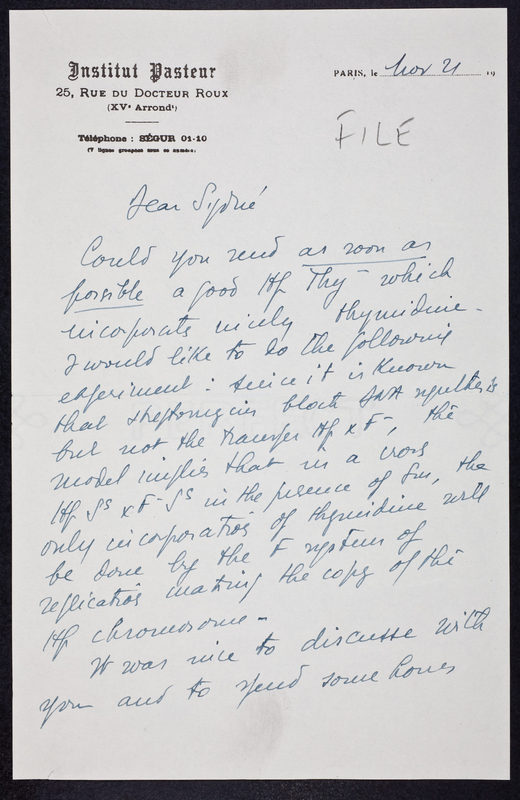 Institut Pasteur
25, RUE DU DOCTEUR ROUX
(XVe Arrondt)
Téléphone : SÉGUR 01-10
(7 lignes groupées sous ce numéro)
PARIS, le Nov 21 19
FILE
Dear Sydné
Could you send as soon as
possible a good Hfr Thy- which
incorporats nicely thymidine -
I would like to do the following
experiment : since it is known
that streptomycin block DNA synthesis
but not the transfer Hfr x F-, the
model implies that in a cross
Hfr Ss x F- Ss in the presence of Sm, the
only incorporation of thymidine will
be done by the F system of
replication making the copy of the
Hfr chromosome -
It was nice to discusse with
you and to spend some hours